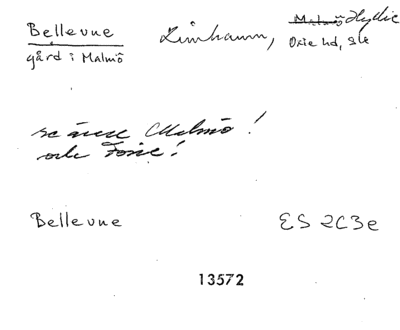 Bellevue Limhamn, Malmö Hyllie
gård i Malmö Oxie hd, Sk
se även Malmö!
och Fosie!
Bellevue ES 2C3e
13572